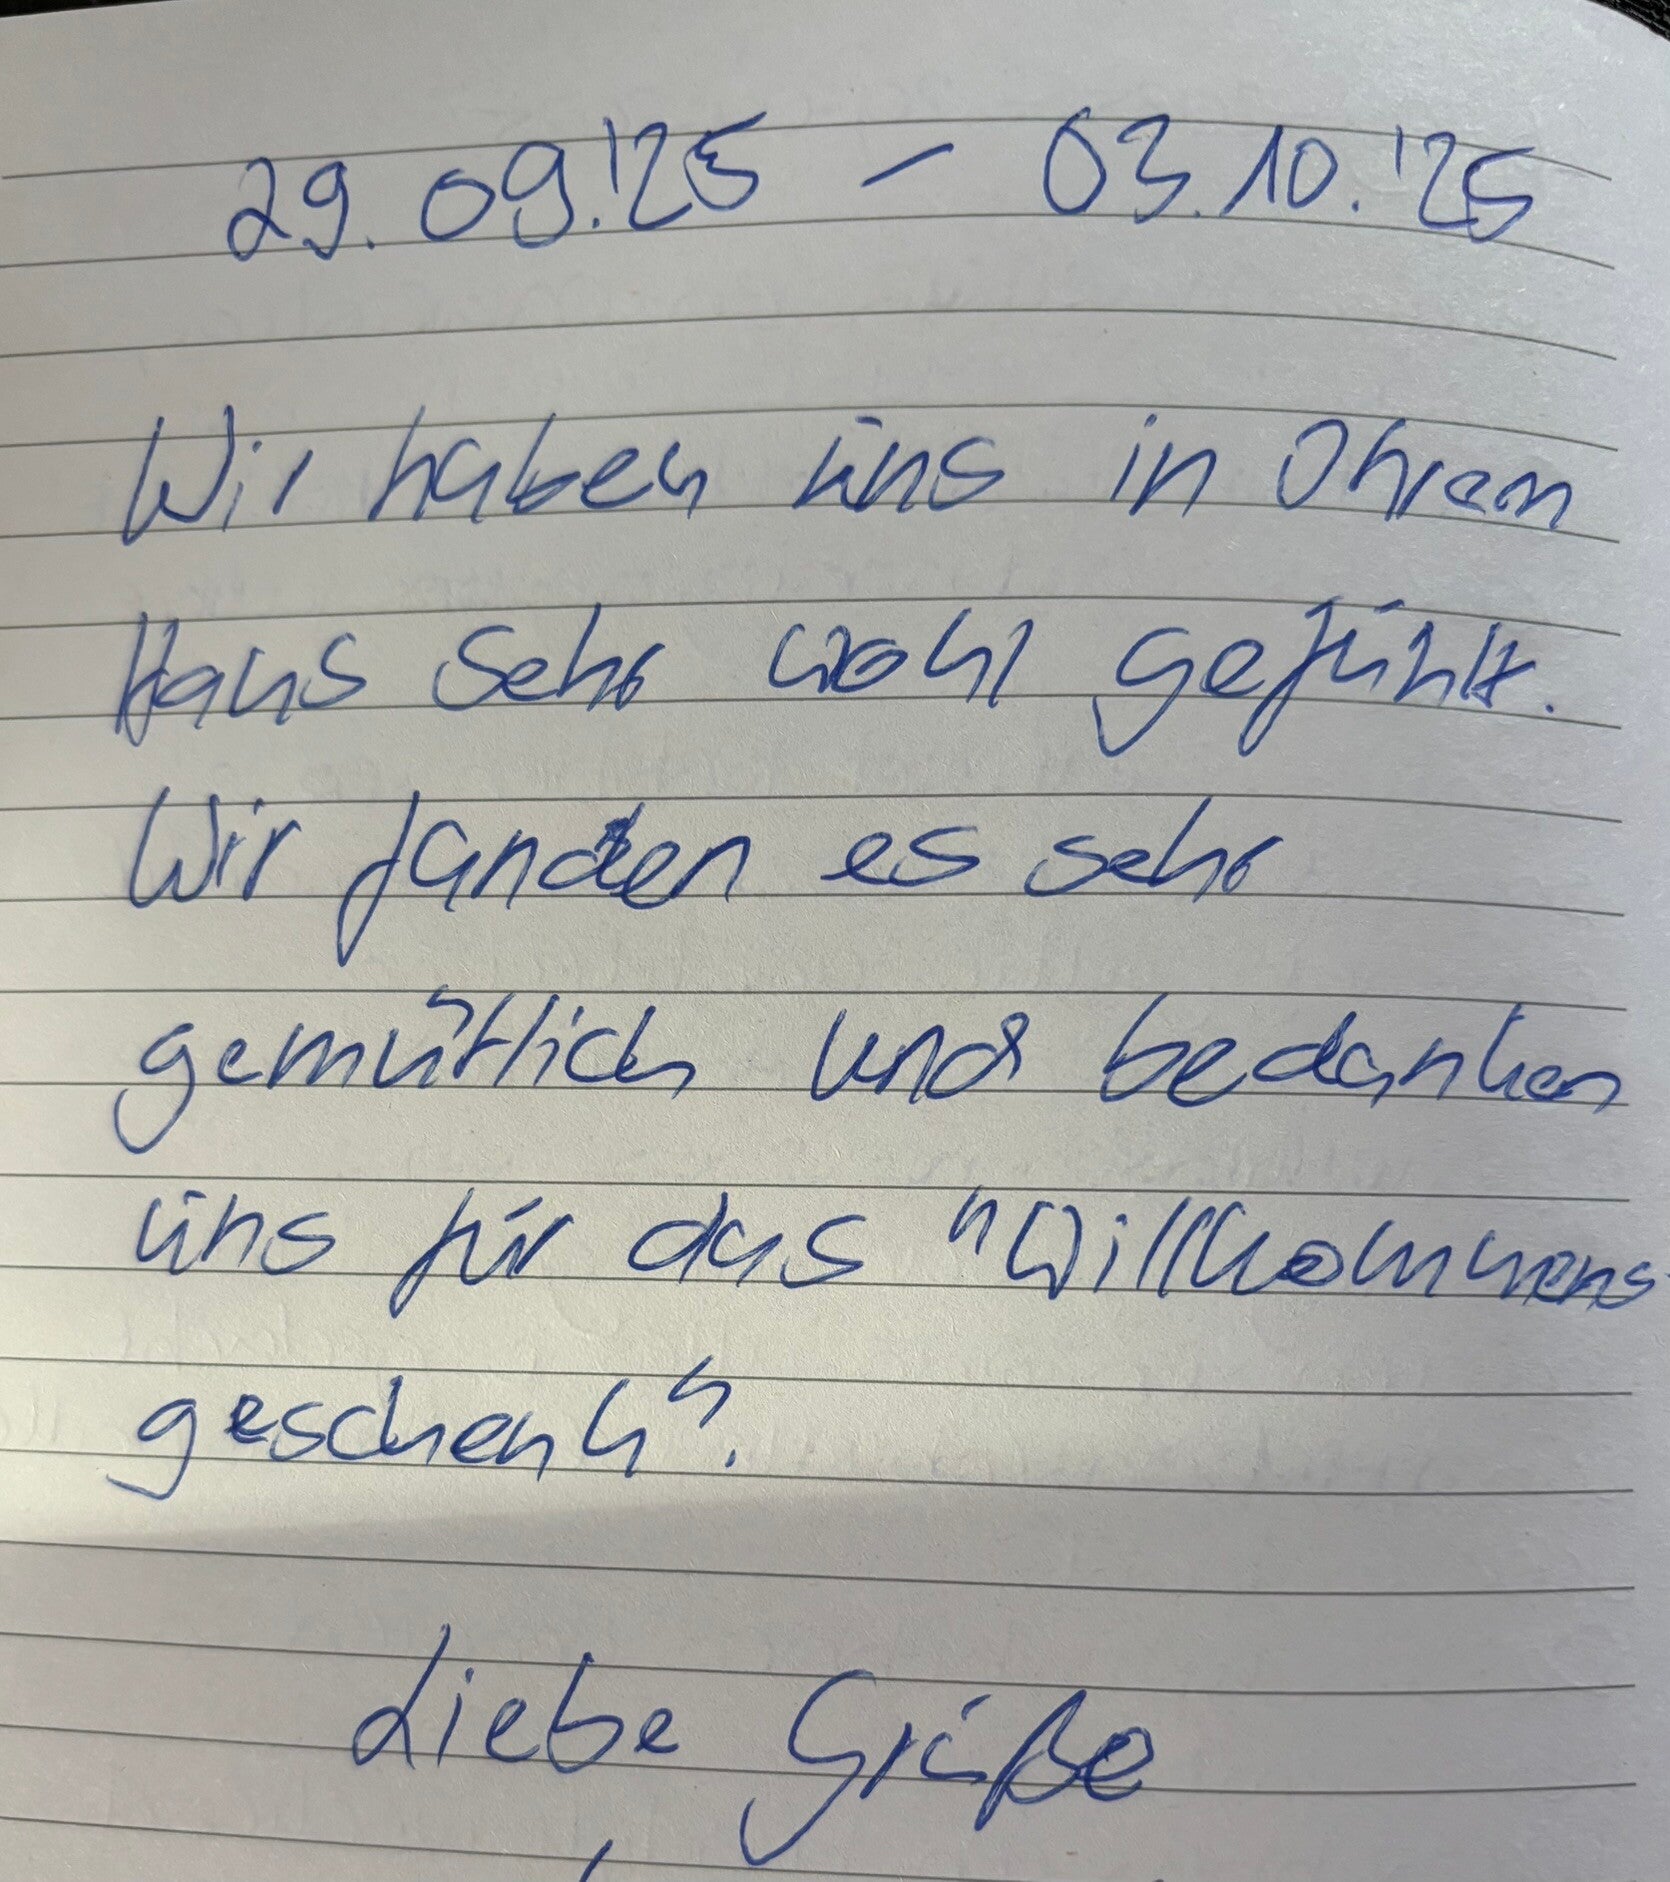 29.09.'25 – 03.10.'25
Wir haben uns in Ihrem
Haus sehr wohl gefühlt.
Wir fanden es sehr
gemütlich und bedanken
uns für das "Willkommens-
geschenk".
Liebe Grüße